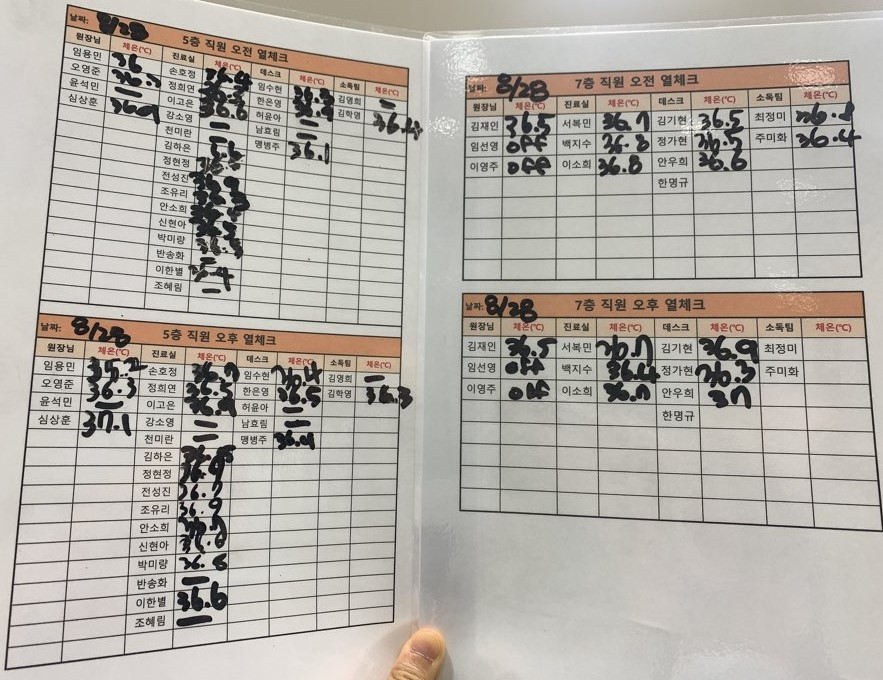 날짜: 8/28 5층 직원 오전 열체크
원장님 체온(℃) 진료실 체온(℃) 데스크 체온(℃) 소독팀 체온(℃)
임용민 36 손호정 임수현 김영희 —
오영준 정희연 한은영 김학영
윤석민 — 이고은 36.6 허윤아
심상훈 36.9 강소영 — 남효림 —
천미란 — 맹병주 36.1
김하은
정현정
전성진
조유리
안소희
신현아
박미량
반송화 —
이한별
조혜림 —
날짜: 8/28 5층 직원 오후 열체크
원장님 체온(℃) 진료실 체온(℃) 데스크 체온(℃) 소독팀 체온(℃)
임용민 35.2 손호정 임수현 36.4 김영희 —
오영준 36.3 정희연 한은영 36.5 김학영 36.3
윤석민 — 이고은 허윤아 —
심상훈 37.1 강소영 — 남효림 —
천미란 — 맹병주
김하은
정현정
전성진 36.7
조유리 36.9
안소희
신현아
박미량
반송화 —
이한별 36.6
조혜림 —
날짜: 8/28 7층 직원 오전 열체크
원장님 체온(℃) 진료실 체온(℃) 데스크 체온(℃) 소독팀 체온(℃)
김재인 36.5 서복민 36.7 김기현 36.5 최정미
임선영 off 백지수 36.8 정가현 36.5 주미화 36.4
이영주 off 이소희 36.8 안우희 36.6
한명규
날짜: 8/28 7층 직원 오후 열체크
원장님 체온(℃) 진료실 체온(℃) 데스크 체온(℃) 소독팀 체온(℃)
김재인 36.5 서복민 36.7 김기현 36.9 최정미
임선영 off 백지수 36.4 정가현 36.3 주미화
이영주 off 이소희 36.7 안우희 37
한명규